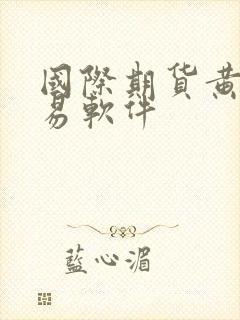 國際期货黄
易軟件
藍心湄